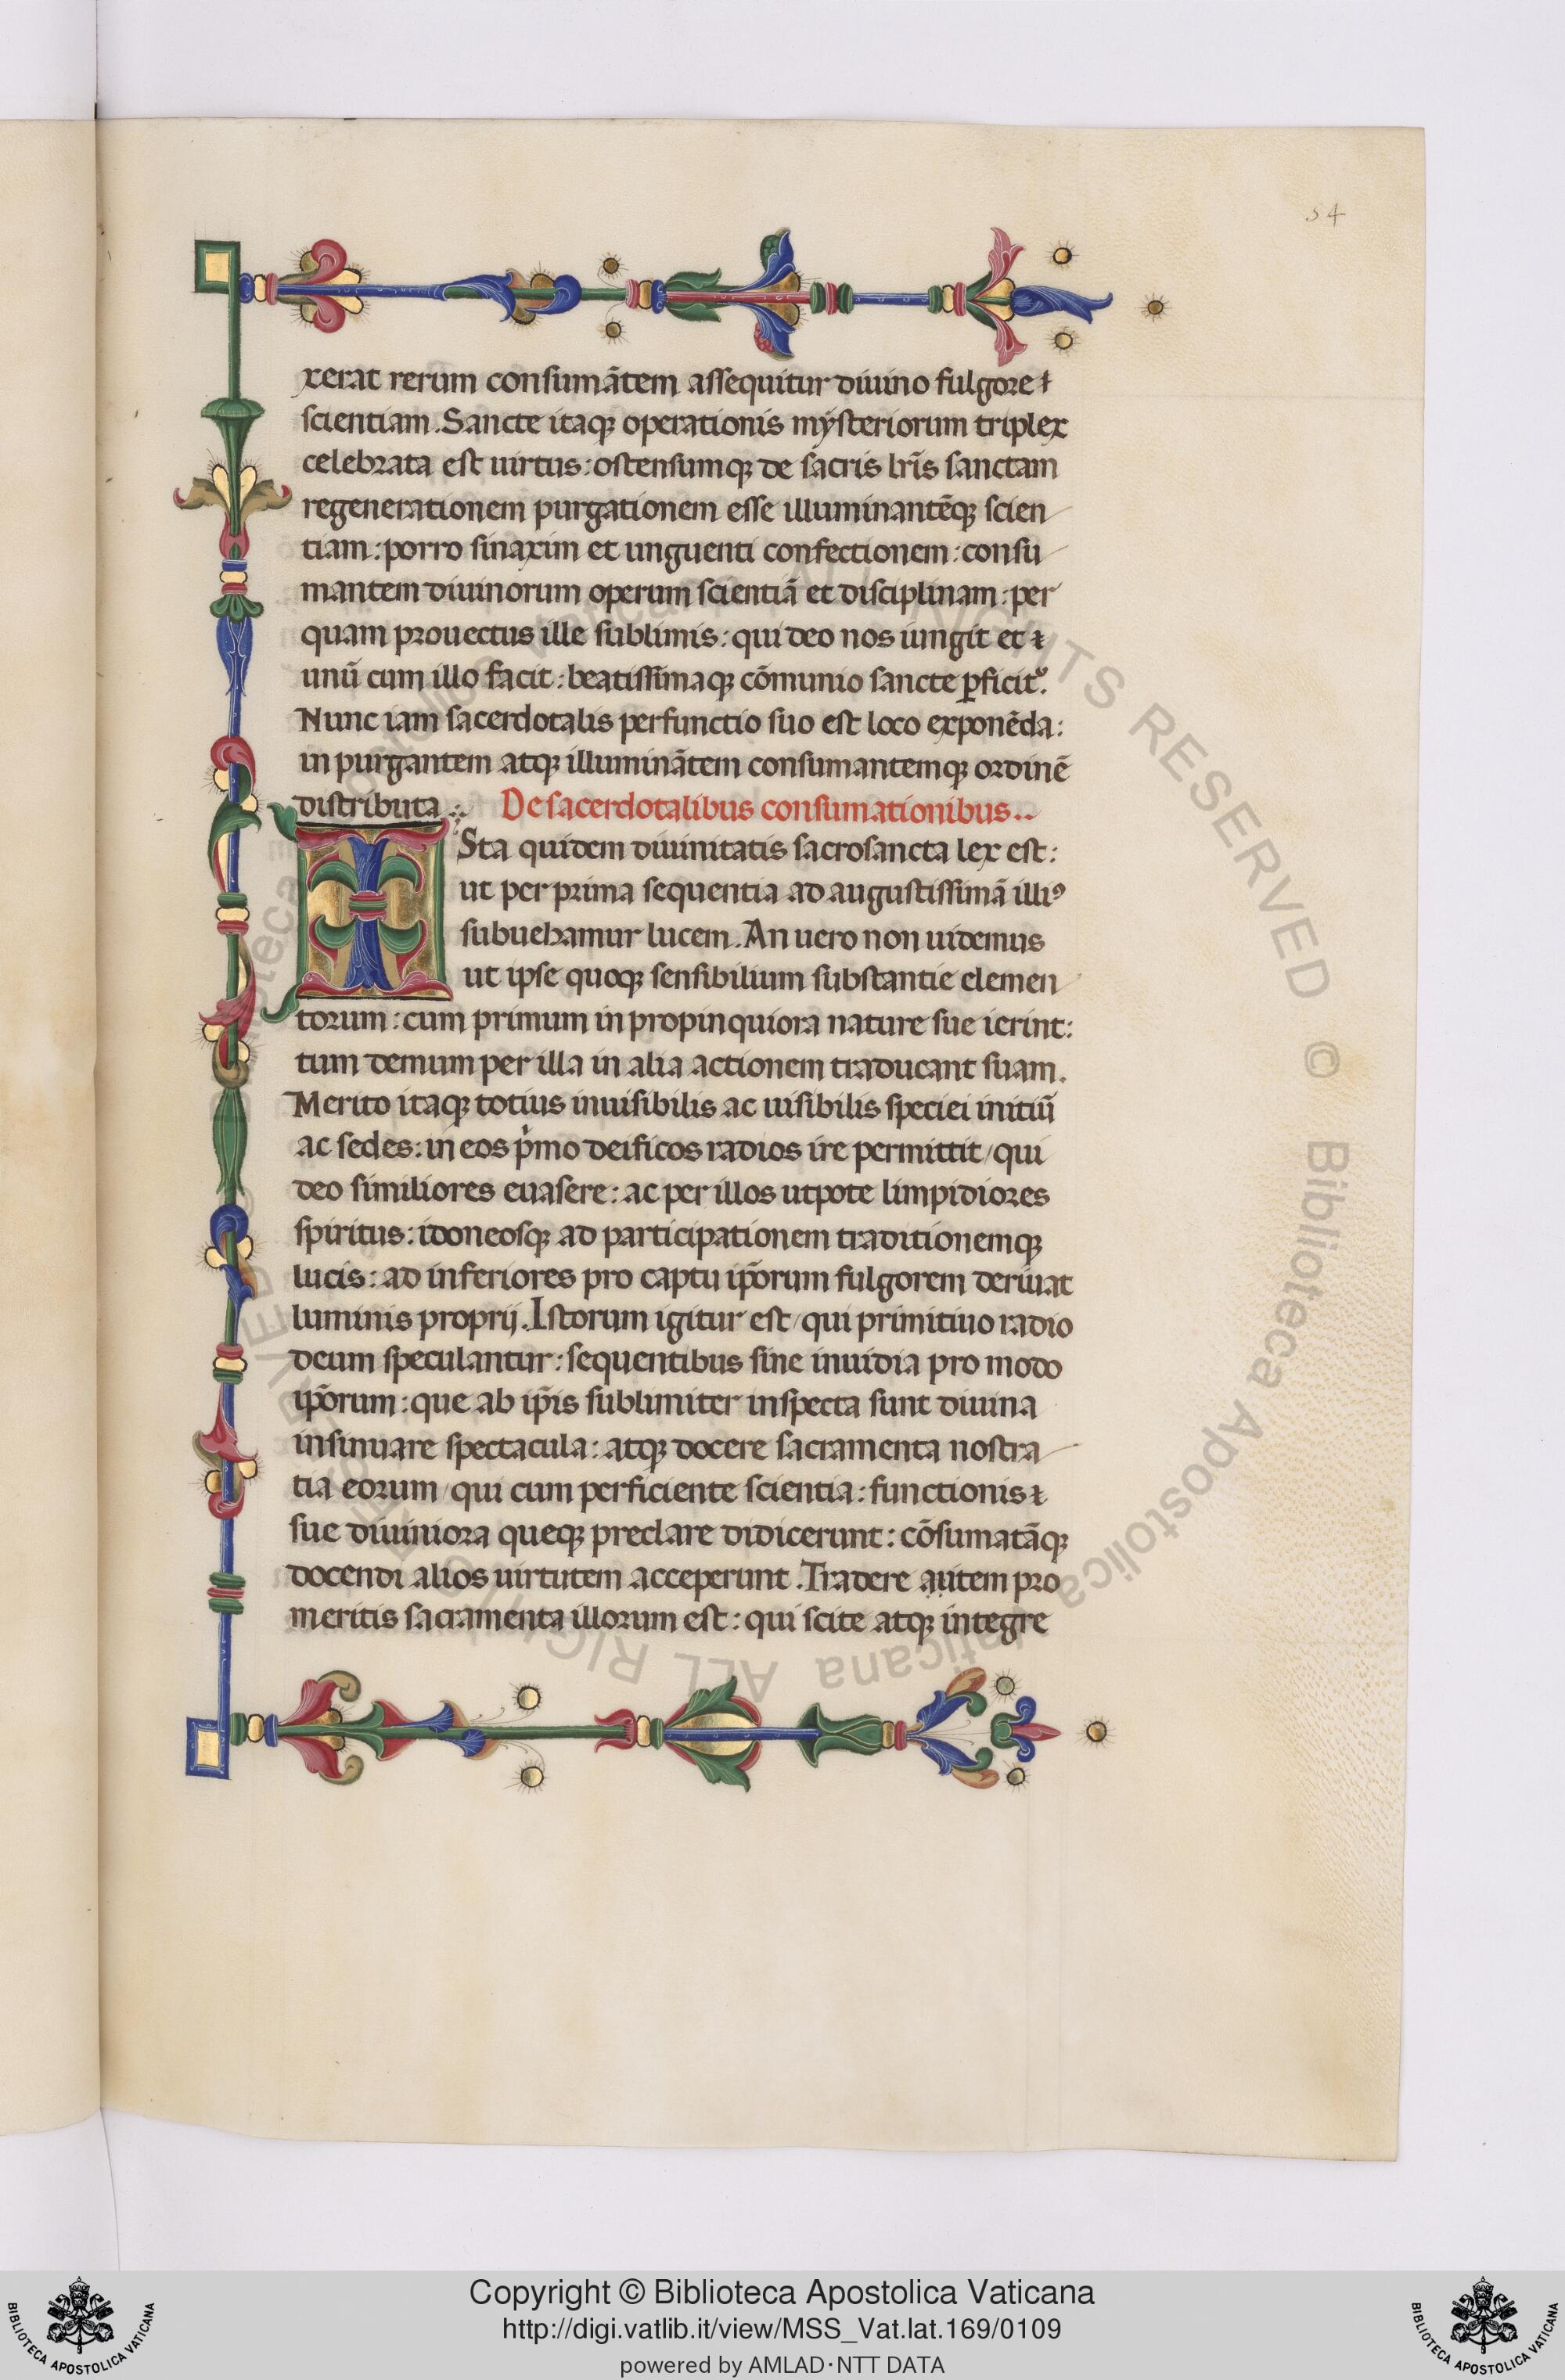 54
xerat rerum consumãtem assequitur diuino fulgore
scientiam. Sancte itaqꝫ operationis mẏsteriorum triplex
celebrata est uirtus: ostensumqꝫ de sacris lrĩs sanctam
regenerationem purgationem esse illuminantẽqꝫ scien
tiam: porro sinaxim et unguenti confectionem: consu
mantem diuinorum operum scientiã et disciplinam: per
quam prouectus ille sublimis: qui deo nos iungit et
unũ cum illo facit: beatissimaqꝫ cõmunio sancte ꝑficitᷣ.
Nunc iam sacerdotalis perfunctio suo est loco exponẽda:
in purgantem atqꝫ illuminãtem consumantemqꝫ ordinẽ
distributa. De sacerdotalibus consumationibus..
ISta quidem diuinitatis sacrosancta lex est:
ut per prima sequentia ad augustissimã illiꝰ
subuehamur lucem. An uero non uidemus
ut ipse quoqꝫ sensibilium substantie elemen
torum: cum primum in propinquiora nature sue ierint:
tum demum per illa in alia actionem traducant suam.
Merito itaqꝫ totius inuisibilis ac uisibilis speciei initiũ
ac sedes: in eos pͥmo deificos radios ire permittit/qui
deo similiores euasere: ac per illos utpote limpidiores
spiritus: idoneosqꝫ ad participationem traditionemqꝫ
lucis: ad inferiores pro captu ip̃orum fulgorem deriuat
luminis proprij. Istorum igitur est/qui primitiuo radio
deum speculantur: sequentibus sine inuidia pro modo
ip̃orum: que ab ip̃is sublimiter inspecta sunt diuina
insinuare spectacula: atqꝫ docere sacramenta nostra
tia eorum/qui cum perficiente scientia: functionis
sue diuiniora queqꝫ preclare didicerunt: cõsumatãqꝫ
docendi alios uirtutem acceperunt. Tradere autem pro
meritis sacramenta illorum est: qui scite atqꝫ integre
ALL RIGHTS RESERVED © Biblioteca Apostolica Vaticana
Copyright © Biblioteca Apostolica Vaticana
http://digi.vatlib.it/view/MSS_Vat.lat.169/0109
powered by AMLAD·NTT DATA
BIBLIOTECA APOSTOLICA VATICANA
BIBLIOTECA APOSTOLICA VATICANA